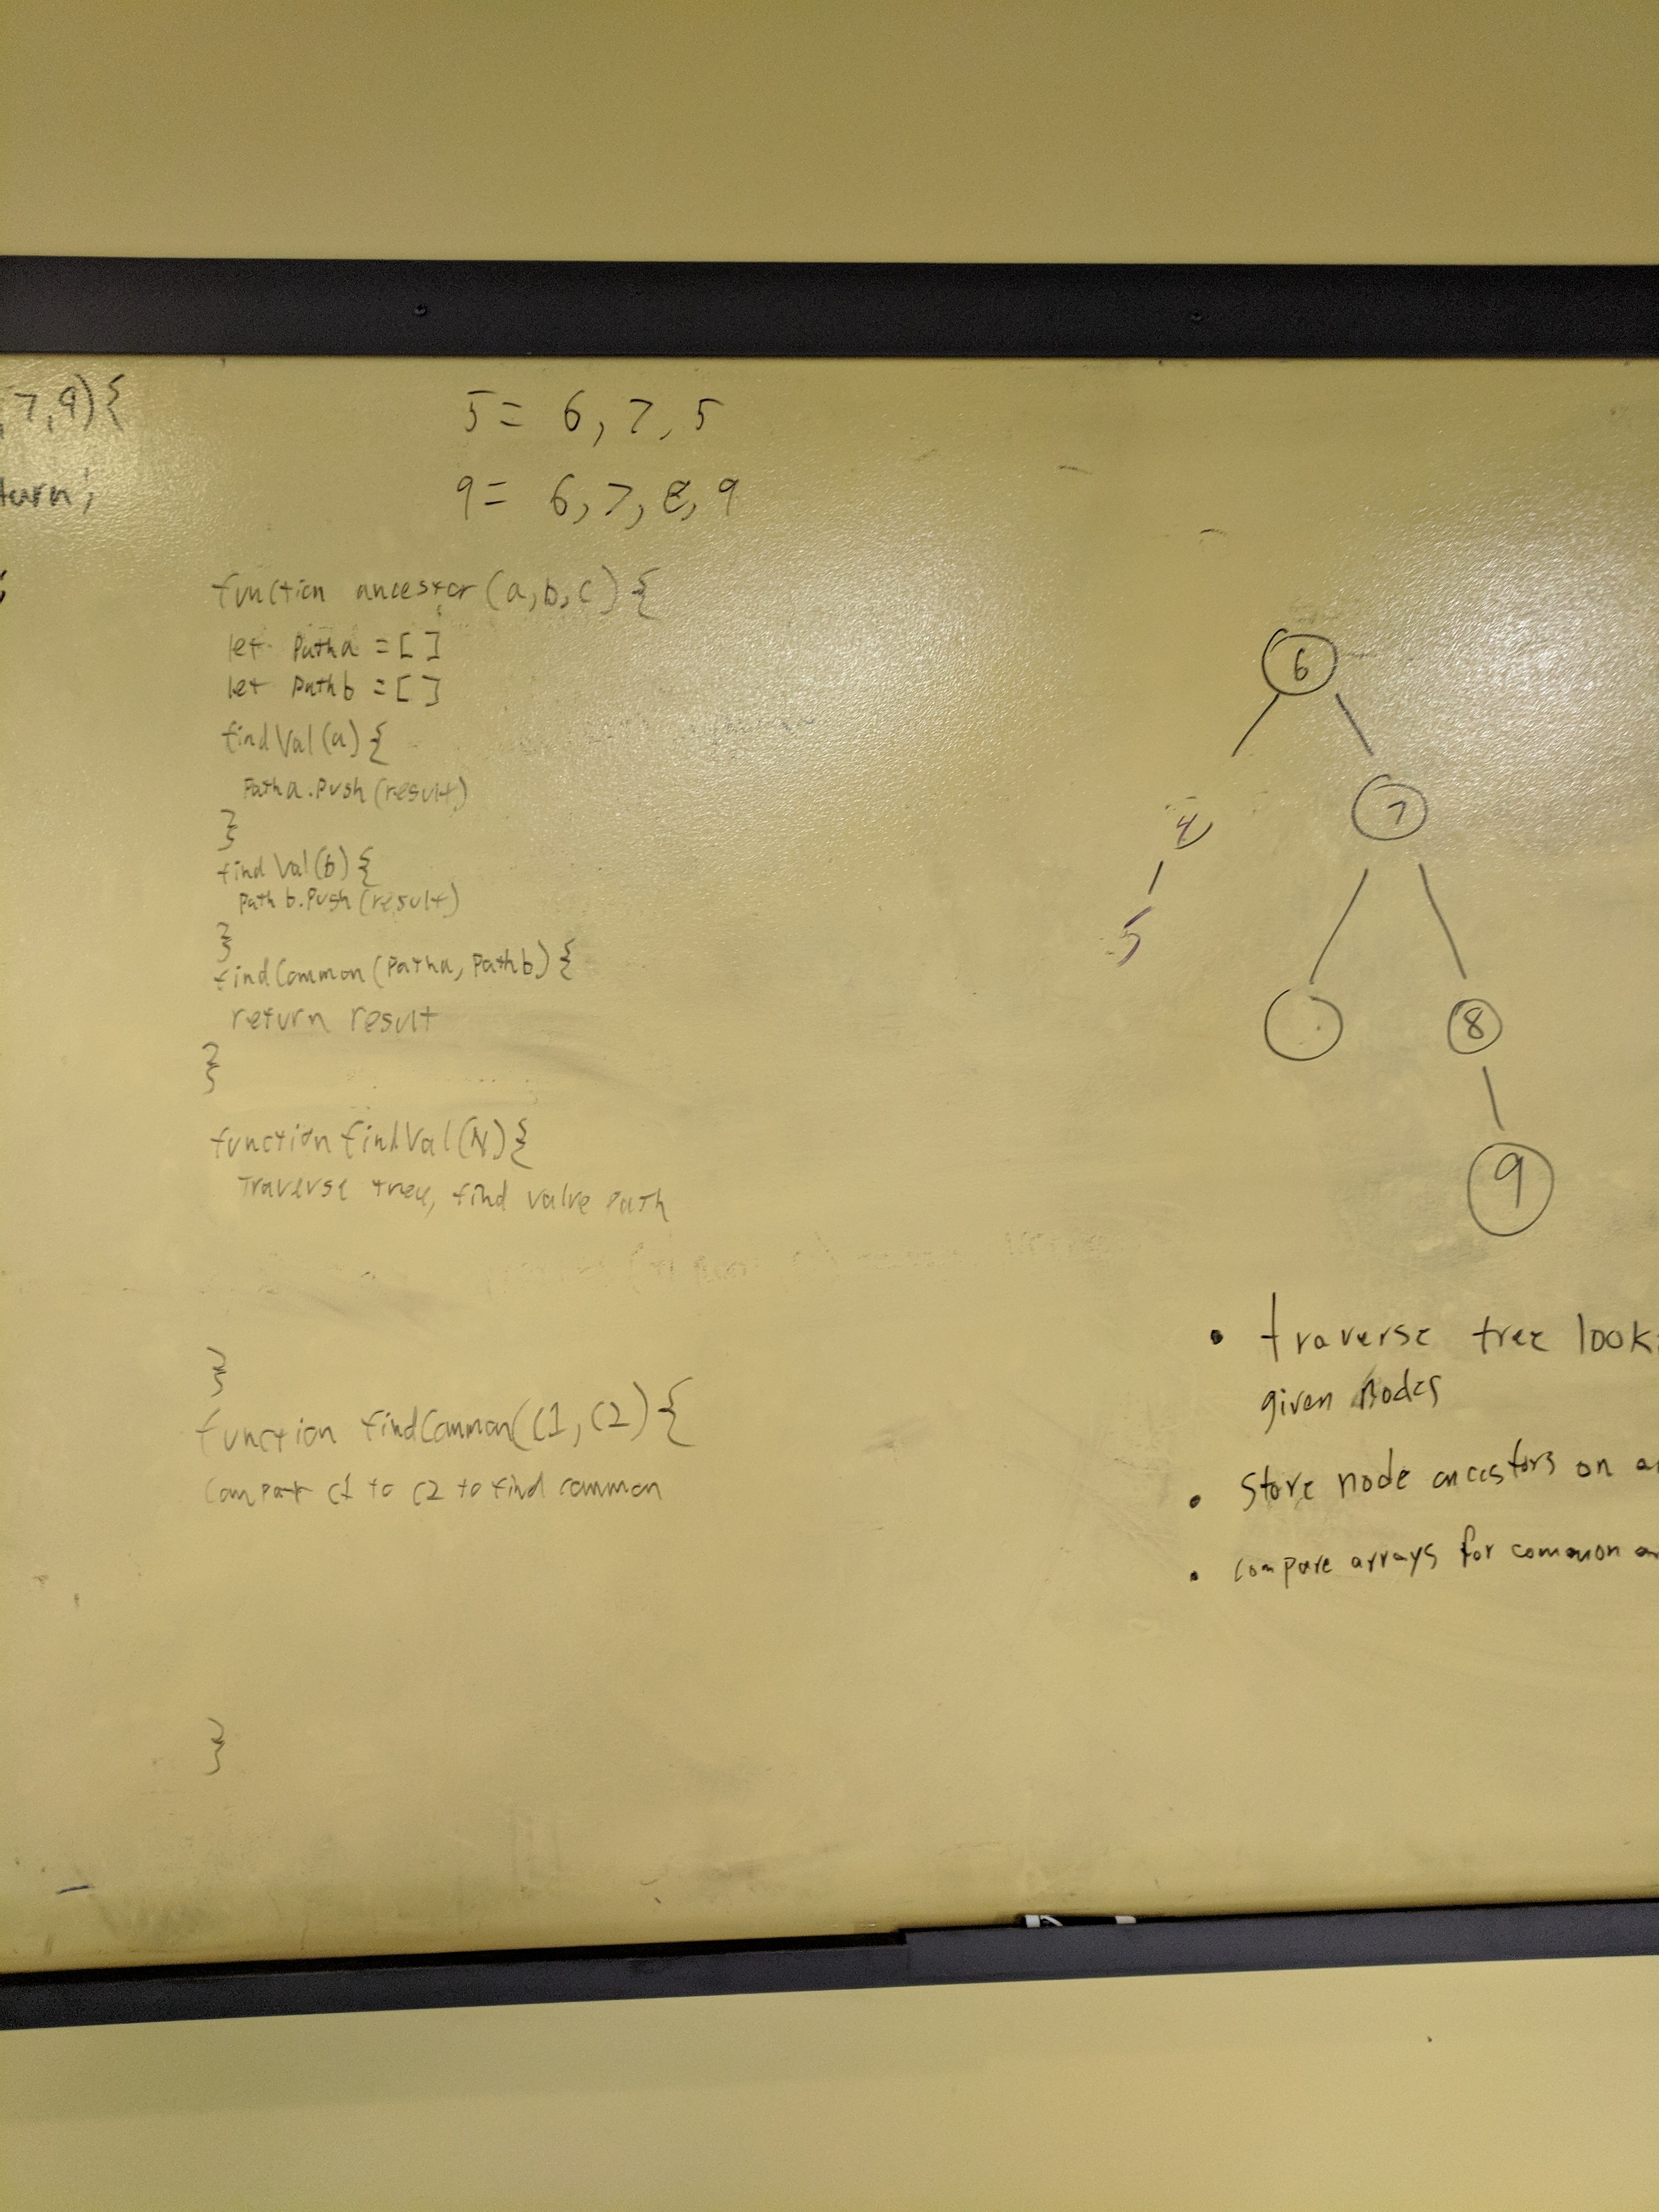 7,9){
turn;
5= 6,7,5
9= 6,7,8,9
function ancestor(a,b,c){
let Patha =[]
let Pathb =[]
findVal(a){
Patha.Push(result)
}
findVal(b){
Pathb.Push(result)
}
findCommon(Patha, Pathb){
return result
}
function findVal(N){
Traverse tree, find value Path
}
function findCommon(C1, C2){
Compare c1 to c2 to find common
}
6
7
4
5
8
9
• traverse tree look
given nodes
• Store node ancestors on a
• compare arrays for common